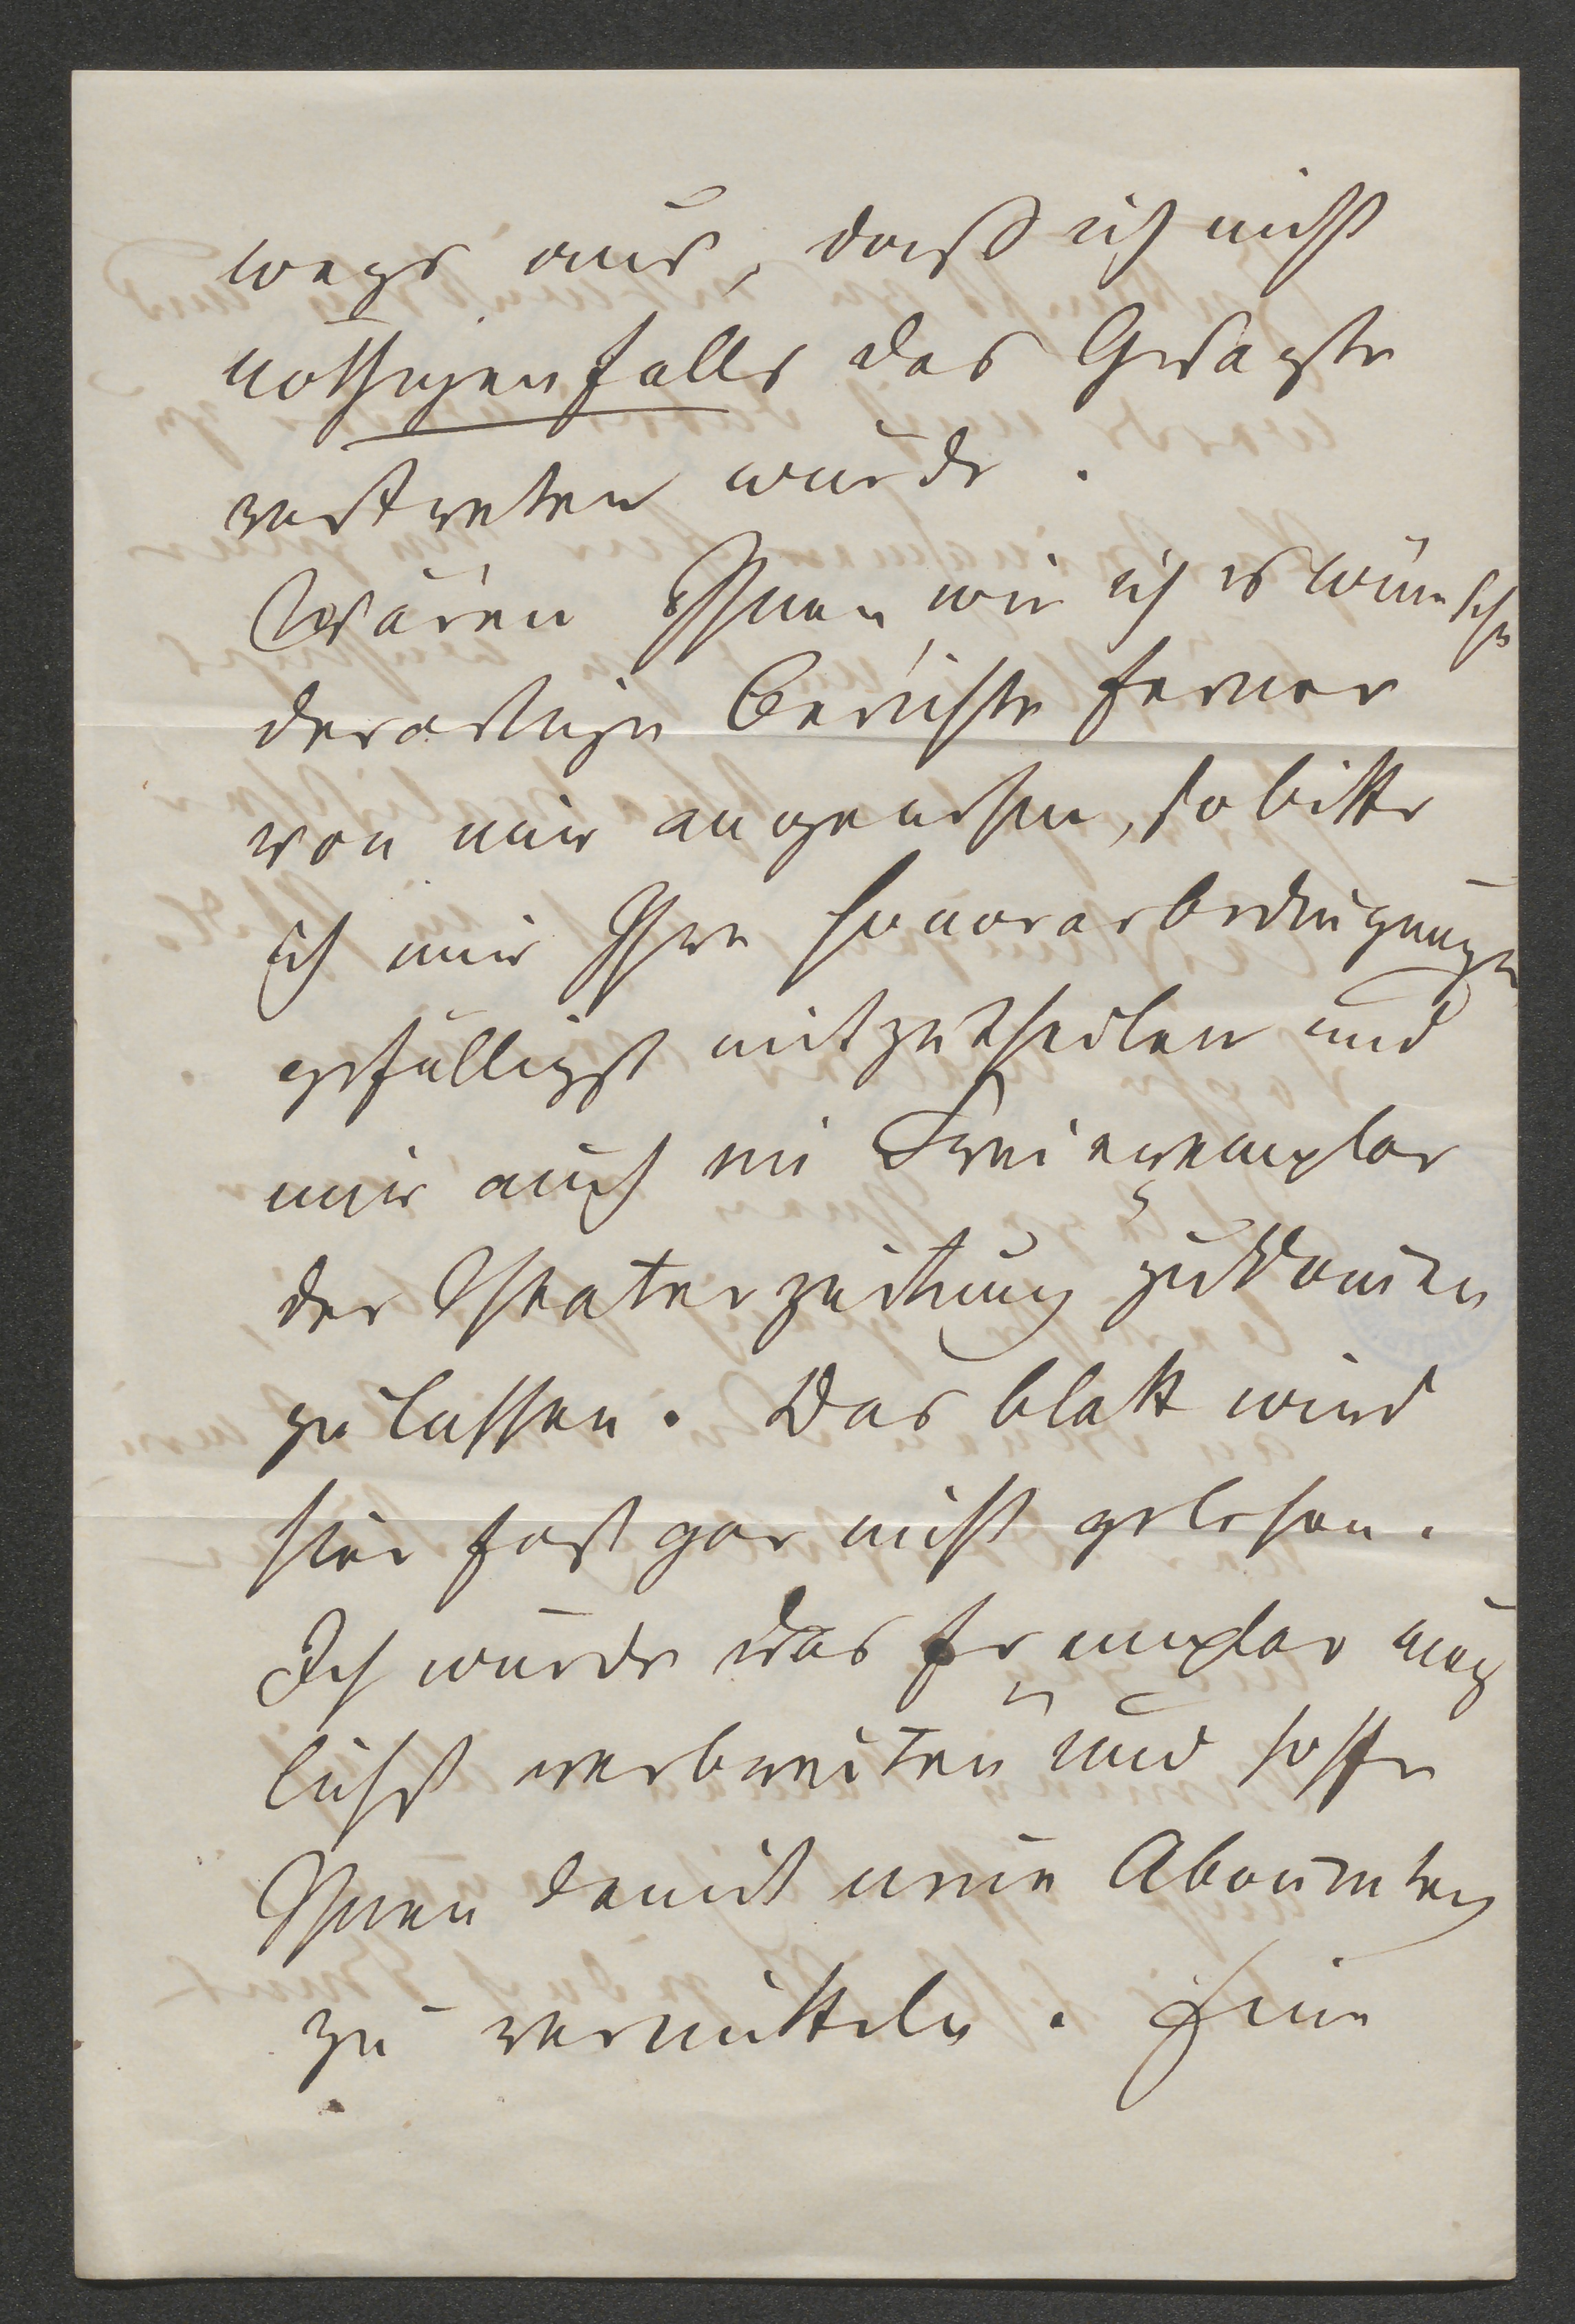 wegs aus, daß ich nicht
nöthigenfalls das Gesagte
vertreten würde.
Wären Ihnen, wie ich es wünsche
derartige Berichte ferner
von mir angenehm, so bitte
ich mir Ihre Honorarbedingungen
gefälligst mitzutheilen und
mir auch ein Freiexemplar
der Theaterzeitung zukommen
zu lassen. Das Blatt wird
hier fast gar nicht gelesen.
Ich würde das Exemplar mög
lichst verbreiten und hoffe
Ihnen damit neue Abonnenten
zu vermitteln. Eine